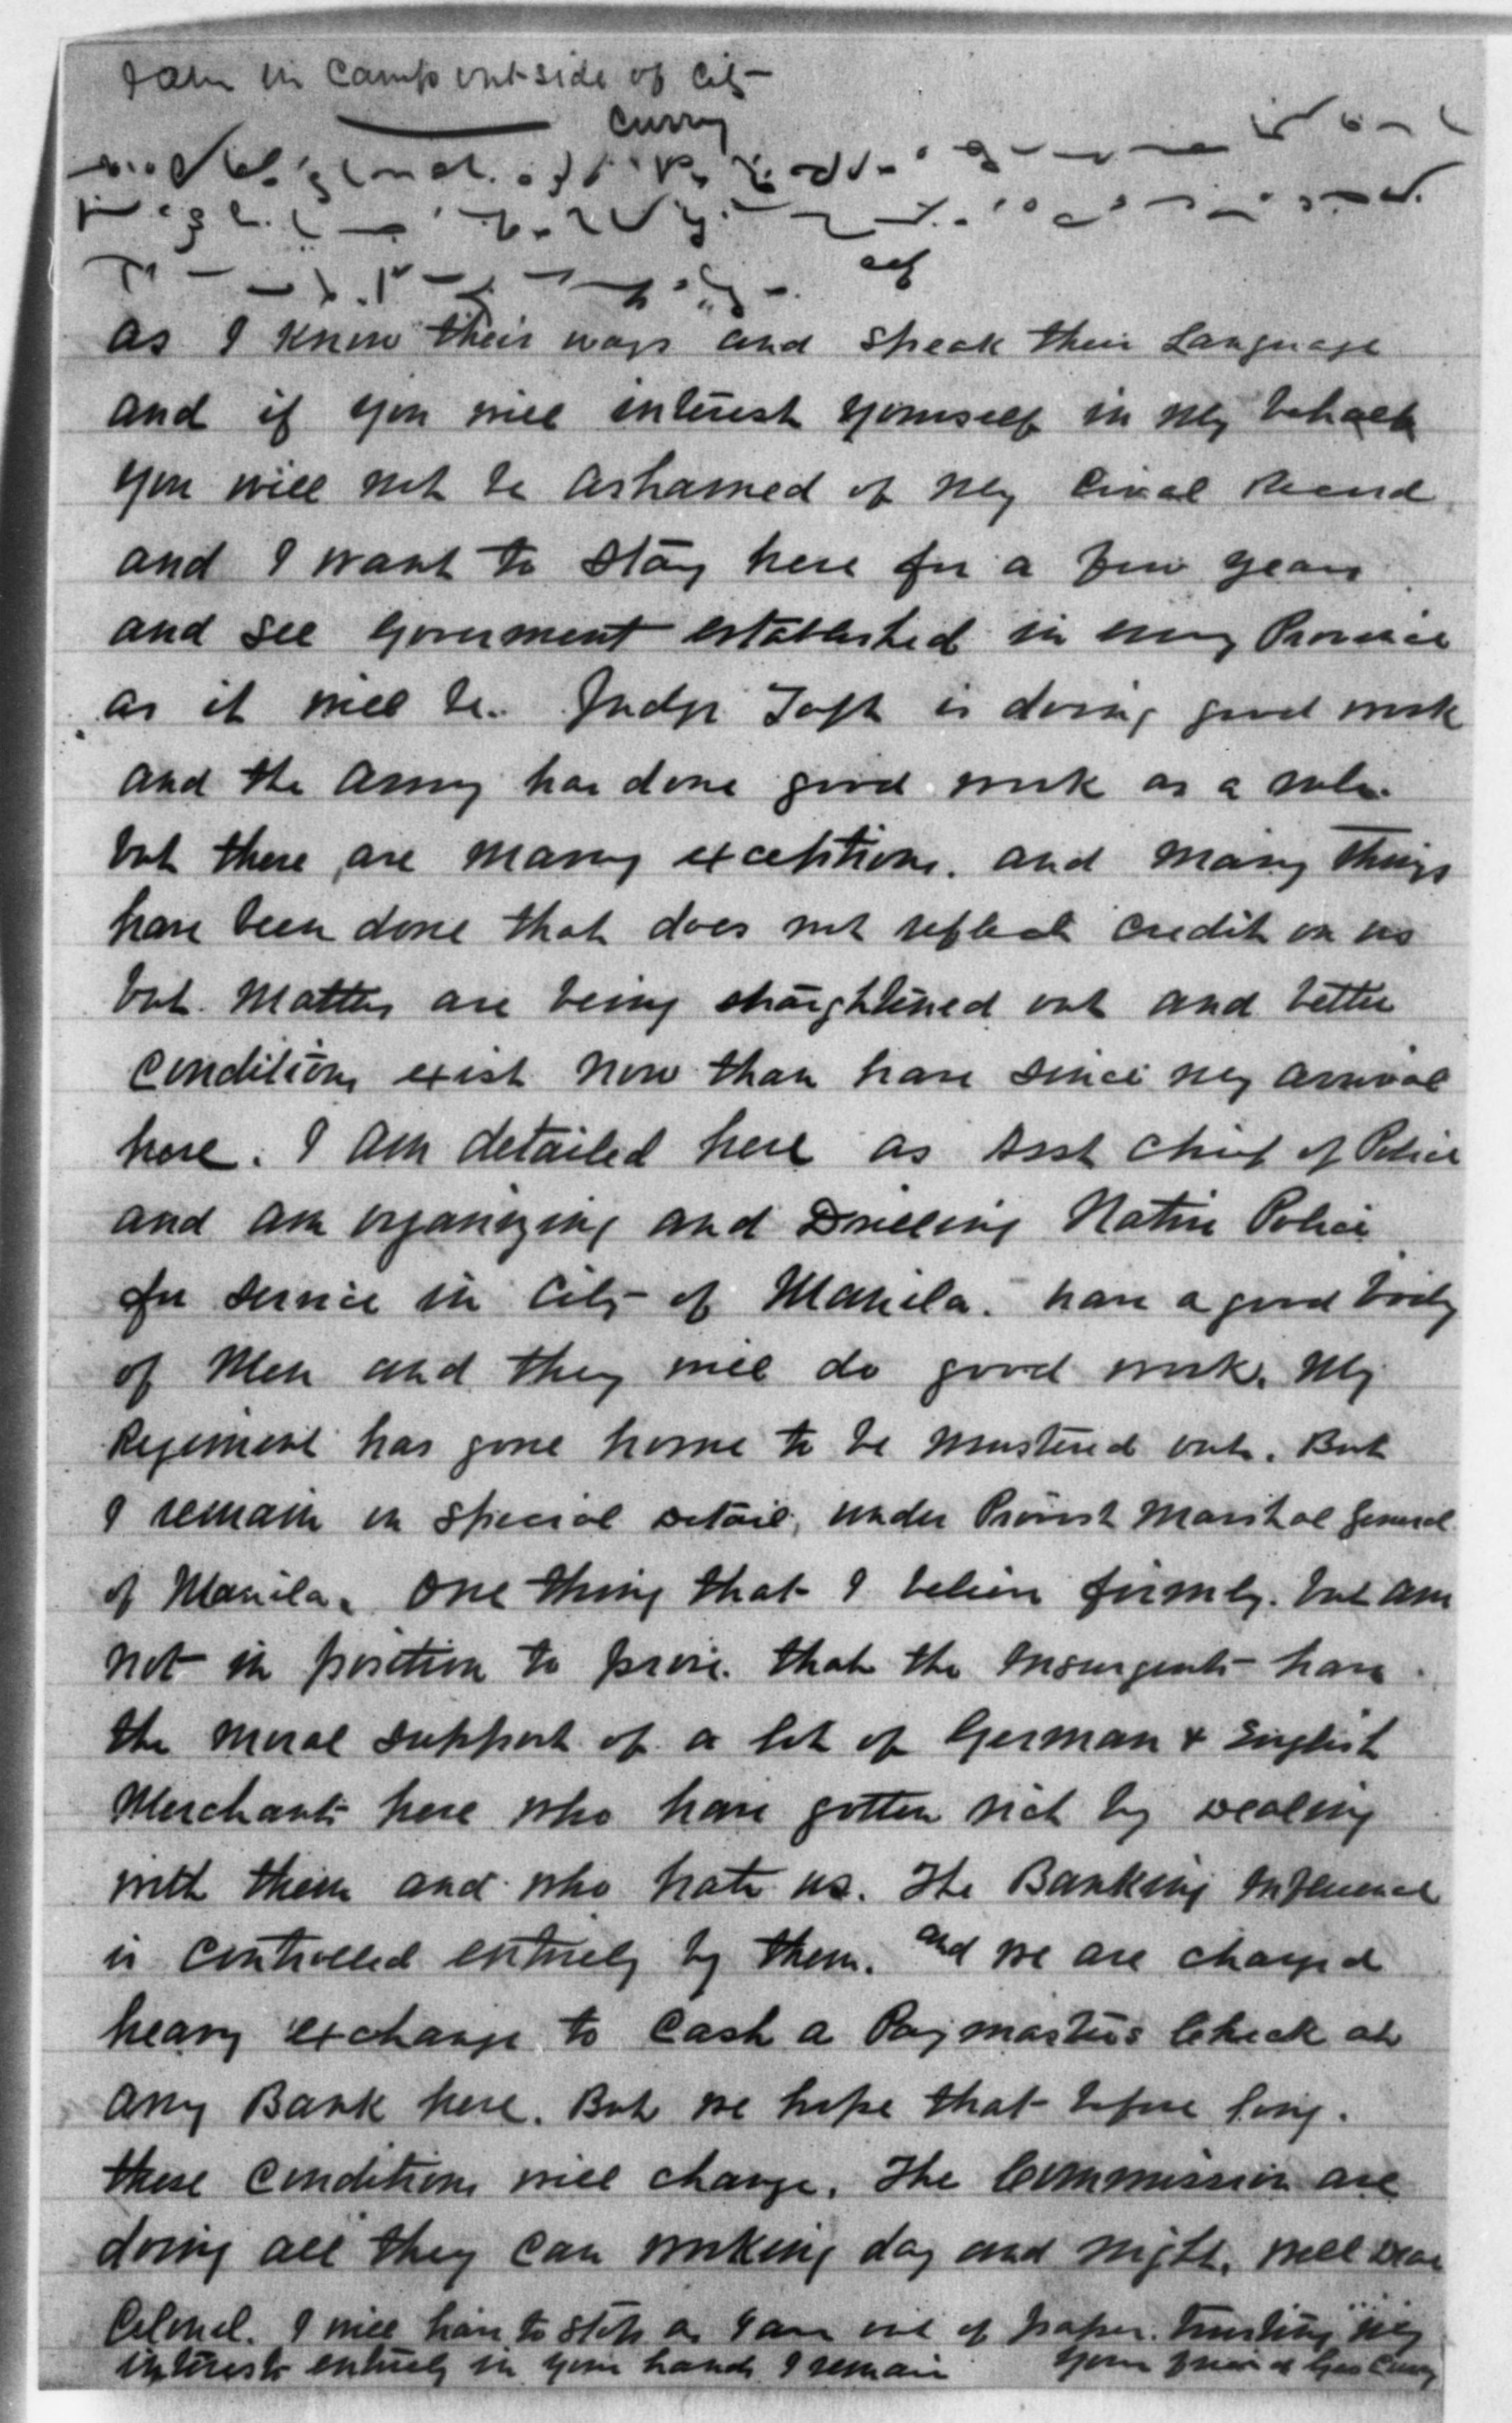 I am in Camp out-side of City
Curry
ack
as I know their ways and speak their Language
and if you will interest yourself in my behalf
you will not be ashamed of my Civil Record
and I want to stay here for a few years
and see Goverment established in every Province
as it will be. Judge Taft is doing good work
and the Army has done good work as a rule.
but there are many exceptions. and many things
have been done that does not reflect credit on us
but. Matters are being straightened out and better
Conditions exist now than have since my arrival
here. I am detailed here as Asst Chief of Police
and am organizing and Drilling Native Police
for service in City of Manila. have a good body
of Men and they will do good work. My
Regiment has gone home to be mustered out. But
I remain on special Detail, under Provost Marshal General
of Manila. One thing that I believe firmly. but am
not in position to prove. that the Insurgents have
the moral support of a lot of German & English
Merchants here who have gotten rich by Dealing
with them and who hate us. The Banking Influence
is Controlled entirely by them. and we are charged
heavy exchange to Cash a Paymasters Check at
any Bank here. But we hope that before long.
these Conditions will change. The Commission are
doing all they Can working day and night. Well Dear
Colonel. I will have to stop as I am out of paper. Trusting my
interests entirely in your hands I remain your friend Geo Curry